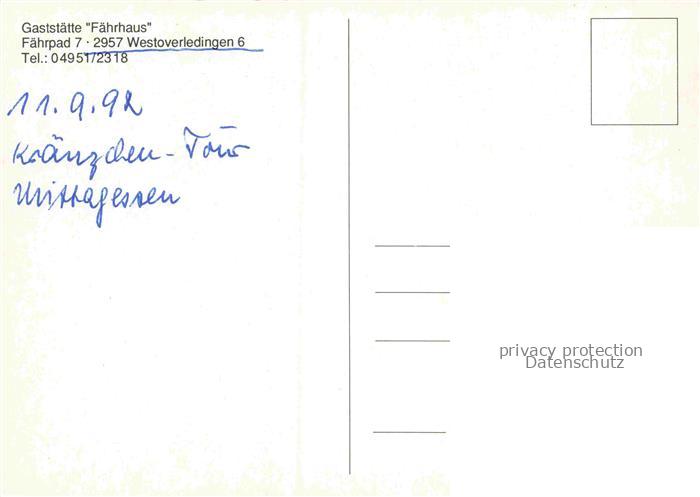 Gaststätte "Fährhaus"
Fährpad 7 · 2957 Westoverledingen 6
Tel.: 04951/2318
11.9.92
Kränzchen-Tour
Mittagessen
privacy protection
Datenschutz